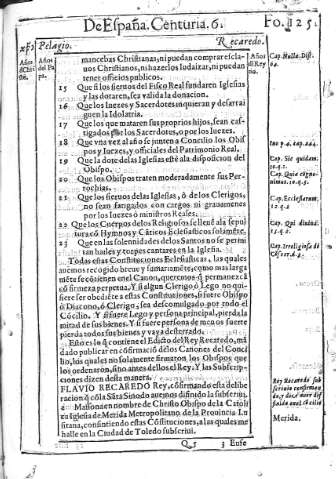 De España. Centuria. 6.
Fo. 125.
Pelagio.
Recaredo.
Años
Años
mancebas Christianas, ni puedan comprar escla
uos Christianos, ni hazerlos Iudaizar, ni puedan
tener officios publicos.
15 Que si los sieruos del Fisco Real fundaren Iglesias
y las dotaren, sea valida la donacion.
16 Que los Iuezes y Sacerdotes inquieran y desarrai
guen la Idolatria.
17 Que los que mataren sus propios hijos, sean cas
tigados por los Sacerdotes, o por los Iuezes.
18 Que vna vez al año se junten a Concilio los Obis
pos y Iuezes, y officiales del Patrimonio Real.
19 Que la dote de las Iglesias esté a la disposicion del
Obispo.
20 Que los Obispos traten moderadamente sus Per
rochias.
21 Que los sieruos de las Iglesias, ò de los Clerigos,
no sean fatigados con cargos ni grauamenes
por los Iuezes ò ministros Reales.
22 Que los Cuerpos de los Religiosos se lleuē a la sepul
tura cō Hymnos y Canticos Ecclesiasticos solamēte.
23 Que en las solennidades de los Santos no se permi
tan bailes y torpes cantares en la Iglesia.
Todas estas Constituciones Ecclesiasticas, las quales
auemos recogido breue y sumariamēte, como mas larga
mēte se cōtienen en el Canon, queremos q̄ permanezcā
cō firmeza perpetua, Y si algun Clerigo ò Lego no qui
siere ser obediēte a estas Constituciones, si fuere Obispo
ò Diacono, ò Clerigo, sea descomulgado por todo el
Cōcilio. Y si fuere Lego y persona principal, pierda la
mitad de sus bienes. Y si fuere persona de menos suerte
pierda todos sus bienes y vaya desterrado.
Esto es lo q̄ contiene el Edicto del Rey Recaredo, mā
dado publicar en cōfirmaciō de los Canones del Conci
lio, los quales no solamente firmaron los Obispos que
los ordenaron, sino antes dellos el Rey. Y las Subscrip-
ciones dizen desta manera.
FLAVIO RECAREDO Rey, cōfirmando esta delibe
racion q̄ cō la Sāta Sinodo auemos difinido la subscriui.
Massona en nombre de Christo Obispo de la Catoli
ca Iglesia de Merida Metropolitano de la Prouincia Lu
sitana, consintiendo estas Constituciones, a las quales me
halle en la Ciudad de Toledo subscriui.
Q 5
3 Eufe
Cap. Nulla. Dist.
54.
Cap. Sic quidam.
Cap. Ecclesiarum.
12. q. 2.
Cap. Qui diuina.
Cap. Irreligiosa de
Rey Recaredo sub
Merida.